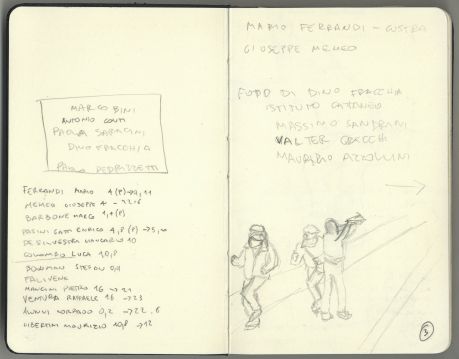 MARCO BINI
ANTONIO CONTI
PAOLA SARACINI
DINO FRACCHIA
PAOLO PEDRIZZETTI
FERRANDI MARIO 4 (P) →9,11
MEMEO GIUSEPPE 4 → 22.6
BARBONE MARC 1,4 (P)
PASINI GATTI ENRICO 4,8 (P) →5,
DE SILVESTRI GIANCARLO 10
COLOMBO LUCA 10,8
BONOMAN STEFON 0,11
FALIVENE
MANCINI PIETRO 16 → 21
VENTURA RAFFAELE 16 → 23
ALUNNI CORRADO 0,2 → 22.6
LIBERTINI MAURIZIO 10,8 →12
MARIO FERRANDI –
GIUSEPPE MEMEO
FOTO DI DINO FRACCHIA
ISTITUTO CATTANEO
MASSIMO SANDRINI
VALTER GRECCHI
MAURIZIO AZZOLLINI
→
3